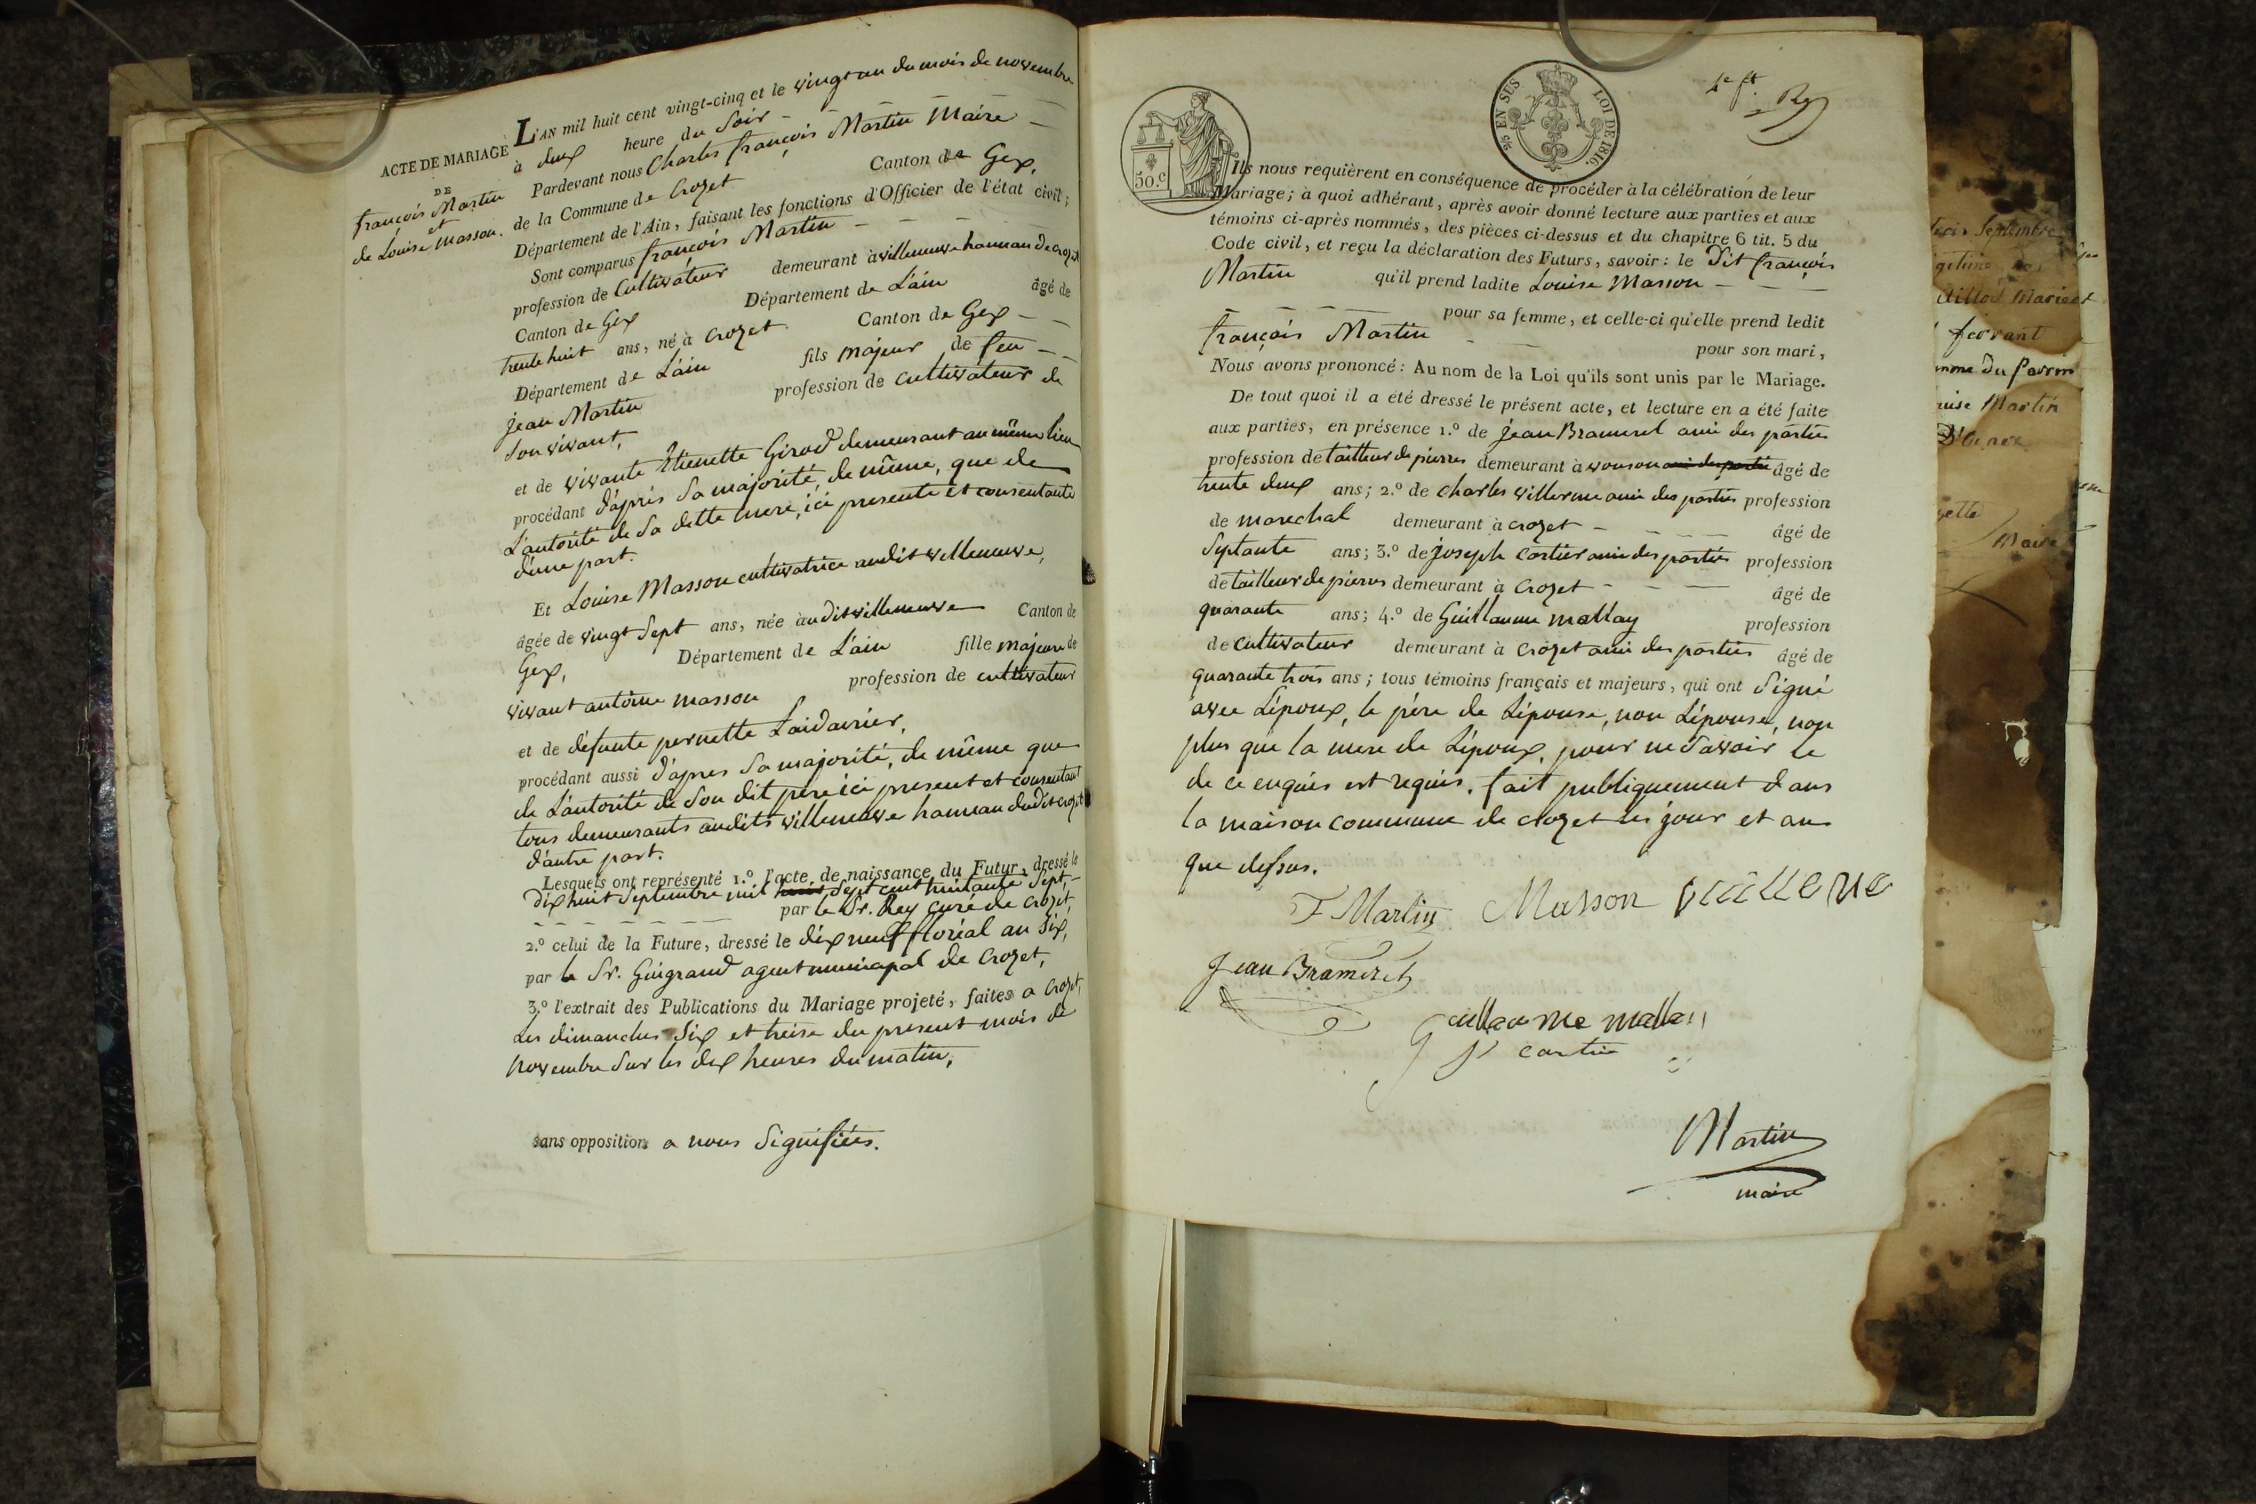 L'AN mil huit cent vingt-cinq et le vingt un du mois de novembre
à deux heure du Soir
ACTE DE MARIAGE
DE
françois Martin
et
de Louise Masson.
Pardevant nous Charles françois Martin Maire
de la Commune de Crozet Canton de Gex,
Département de l'Ain, faisant les fonctions d'Officier de l'état civil;
Sont comparus françois Martin
profession de Cultivateur demeurant à villeneuve hameau de Crozet
Canton de Gex Département de L'ain âgé de
trente huit ans, né à Crozet Canton de Gex
Département de L'ain fils majeur de feu
jean Martin profession de cultivateur de
Son vivant,
et de vivante Etienette Girod demeurant au même lieu
procédant d'après Sa majorité, de même, que de
L'autorité de Sa ditte mere, ici presente et consentante
d'une part.
Et Louise Masson cultivatrice audit villeneuve,
âgée de vingt Sept ans, née audit villeneuve Canton de
Gex, Département de L'ain fille majeure de
vivant antoine masson profession de cultivateur
et de défunte pernette Laidavrier,
procédant aussi d'apres Sa majorité, de même que
de L'autorité de Son dit père ici present et consentant
tous demeurants audits villeneuve hameau dudit Crozet
d'autre part.
Lesquels ont représenté 1.º l'acte de naissance du Futur, dressé le
dix huit Septembre mil Sept cent huitante Sept,
par le Sr. Rey curé de Crozet,
2.º celui de la Future, dressé le dix neuf floréal an Six,
par le Sr. Guigrand agent municapal de Crozet,
3.º l'extrait des Publications du Mariage projeté, faites a Crozet,
Les dimanches Six et treise du present mois de
Novembre Sur les dix heures du matin,
sans opposition a nous Signifiées.
50.c
EN SUS
LOI DE 1816.
Ils nous requièrent en conséquence de procéder à la célébration de leur
Mariage; à quoi adhérant, après avoir donné lecture aux parties et aux
témoins ci-après nommés, des pièces ci-dessus et du chapitre 6 tit. 5 du
Code civil, et reçu la déclaration des Futurs, savoir: le Dit françois
Martin qu'il prend ladite Louise Masson
pour sa femme, et celle-ci qu'elle prend ledit
françois Martin pour son mari,
Nous avons prononcé: Au nom de la Loi qu'ils sont unis par le Mariage.
De tout quoi il a été dressé le présent acte, et lecture en a été faite
aux parties, en présence 1.º de jean Brameret ami des parties
profession de tailleur de pierres demeurant à vouson ami des partie âgé de
trente deux ans; 2.º de Charles villerme ami des parties profession
de marechal demeurant à Crozet âgé de
Septante ans; 3.º de joseph Cartier ami des parties profession
de tailleur de pierres demeurant à Crozet âgé de
quarante ans; 4.º de Guillaume mallay profession
de cultivateur demeurant à Crozet ami des parties âgé de
quarante trois ans; tous témoins français et majeurs, qui ont Signé
avec L'époux, le père de L'épouse, non L'épouse, non
plus que la mere de L'époux, pour ne Savoir le
de ce enquis et requis. fait publiquement dans
la maison commune de Crozet les jour et an
que dessus.
F Martin Masson
Jean Brameret
Guillaume mallay
J cartier
Martin
maire
Septembre
Mariest
fervant
Du Parrin
Martin
Maire